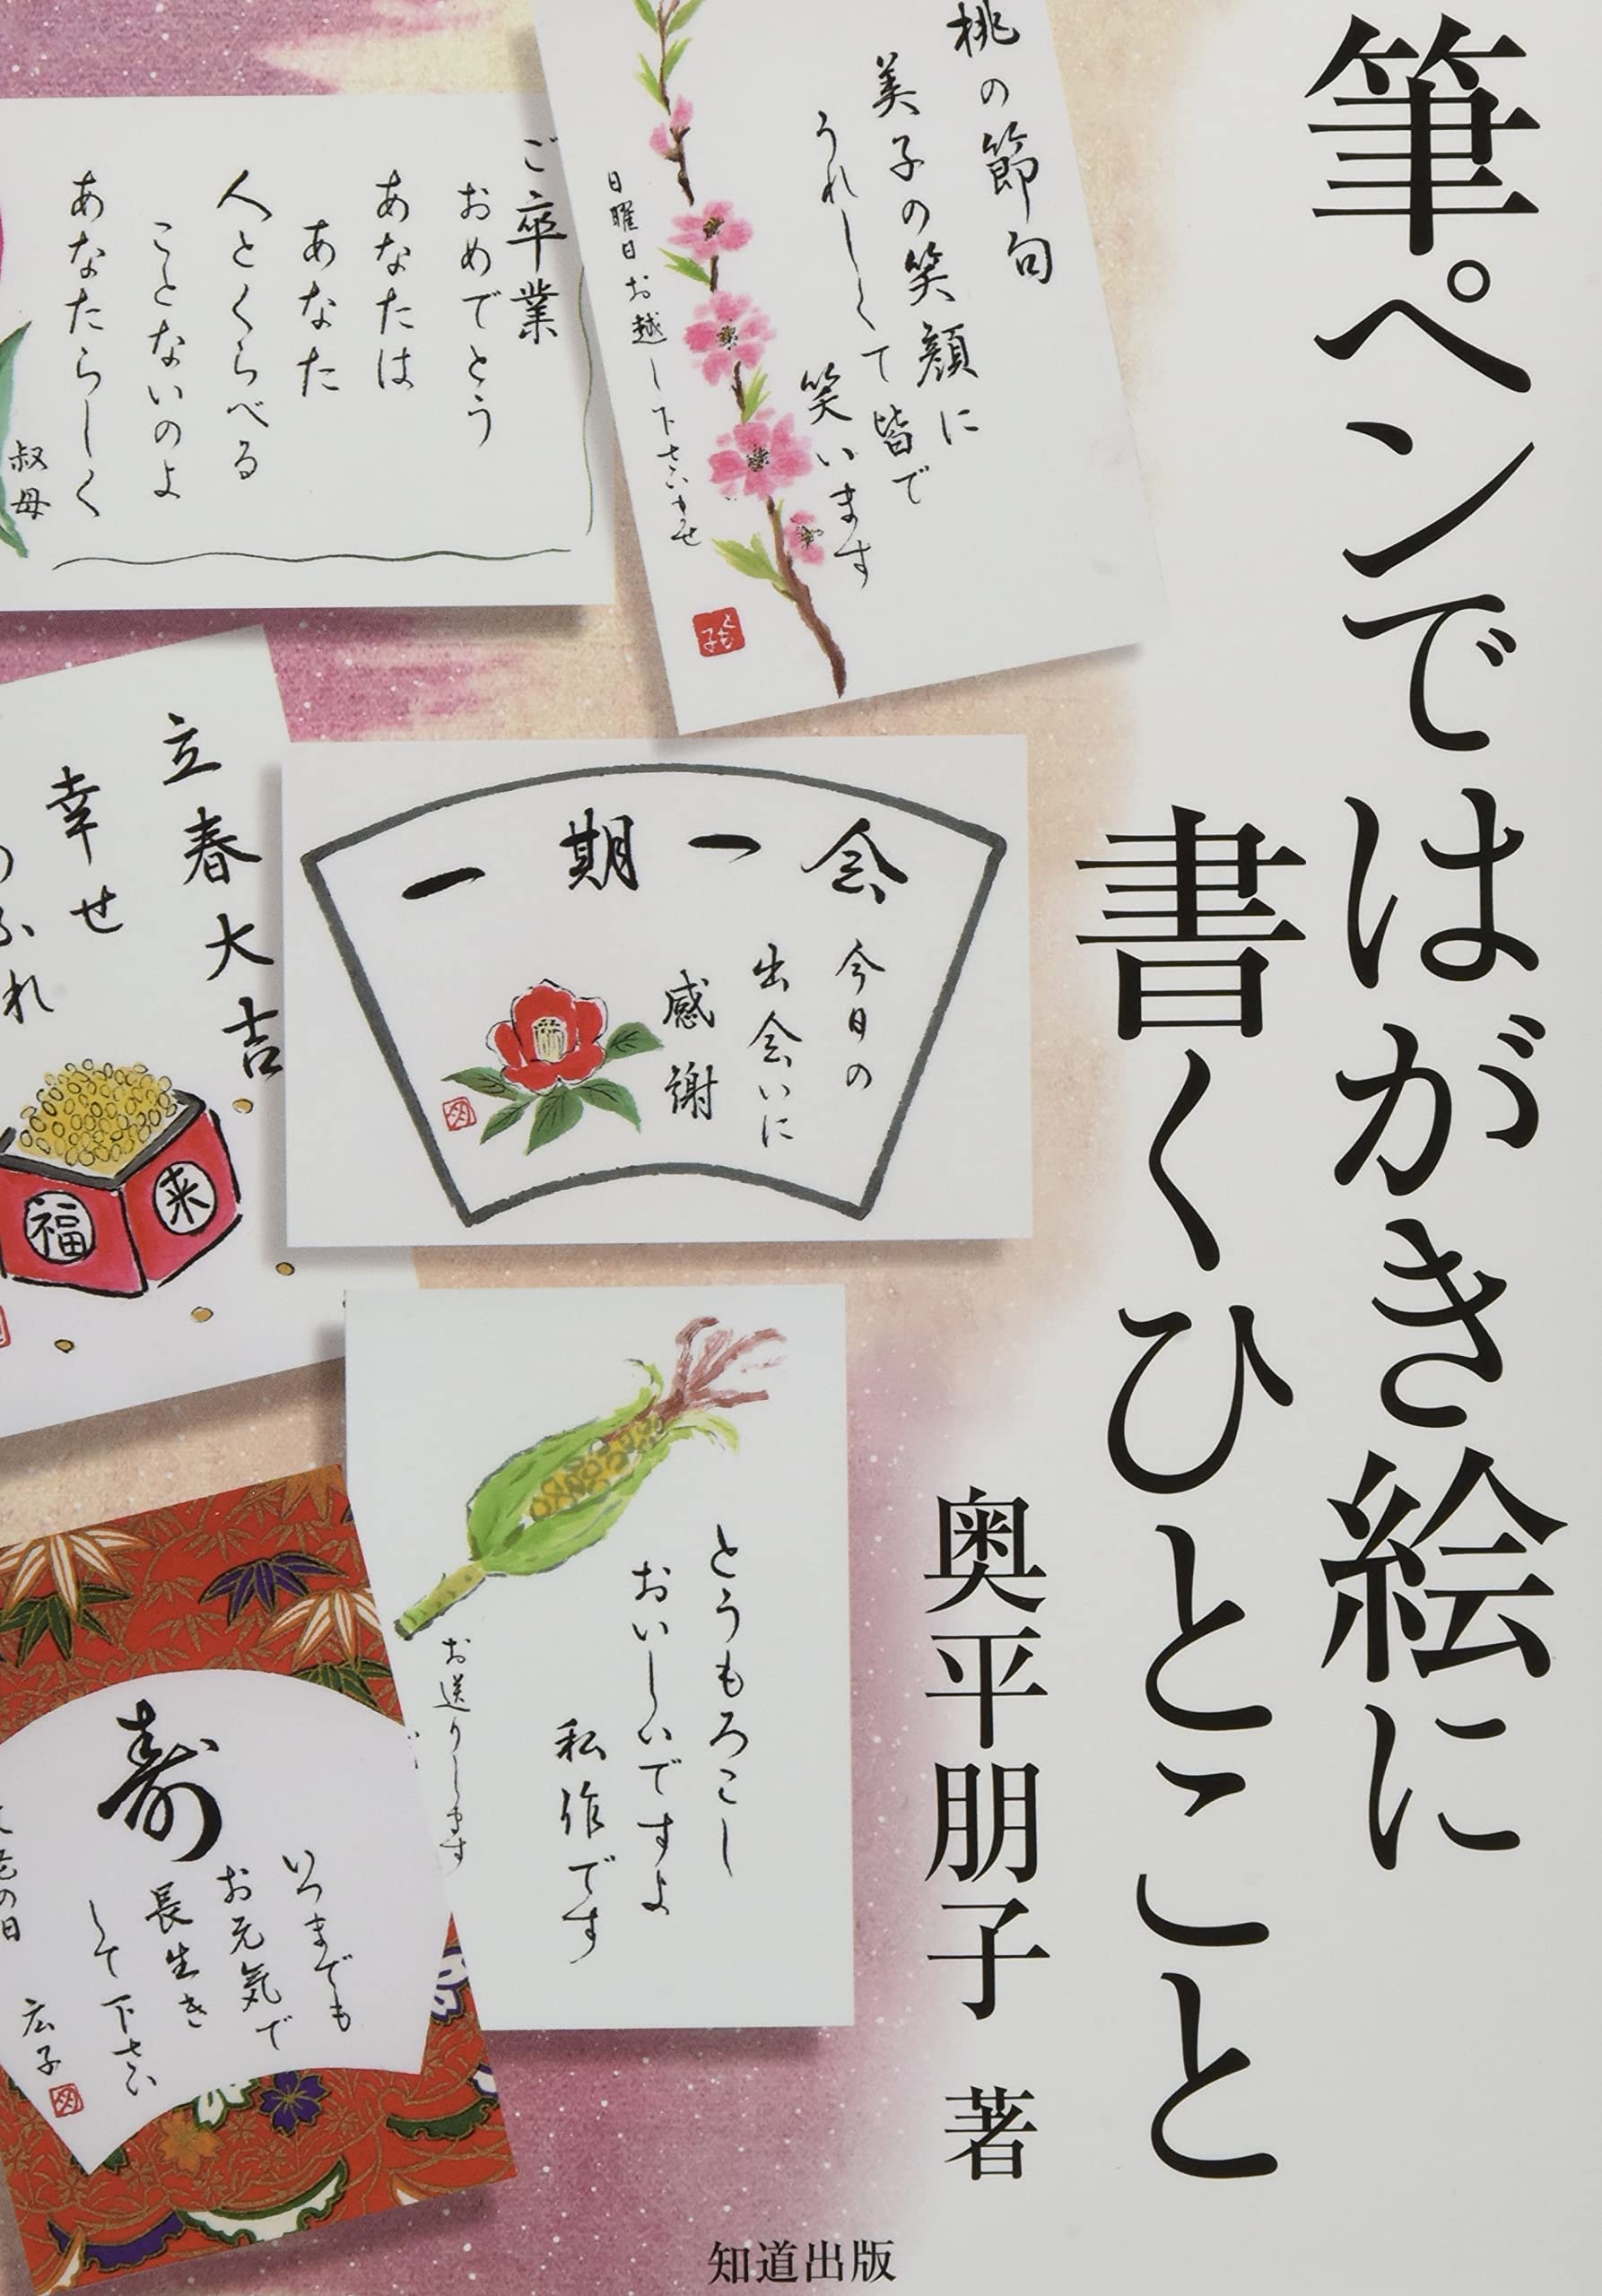 筆ペンではがき絵に
書くひとこと
奥平朋子 著
知道出版
桃の節句
美子の笑顔に
うれしくて皆で
笑います
日曜日お越し下さいませ
とも子
ご卒業
おめでとう
あなたは
あなた
人とくらべる
ことないのよ
あなたらしく
叔母
一期一会
今日の
出会いに
感謝
立春大吉
幸せ
ふれ
福
来
とうもろこし
おいしいですよ
私作です
お送りします
寿
いつまでも
お元気で
長生き
して下さい
の日
広子